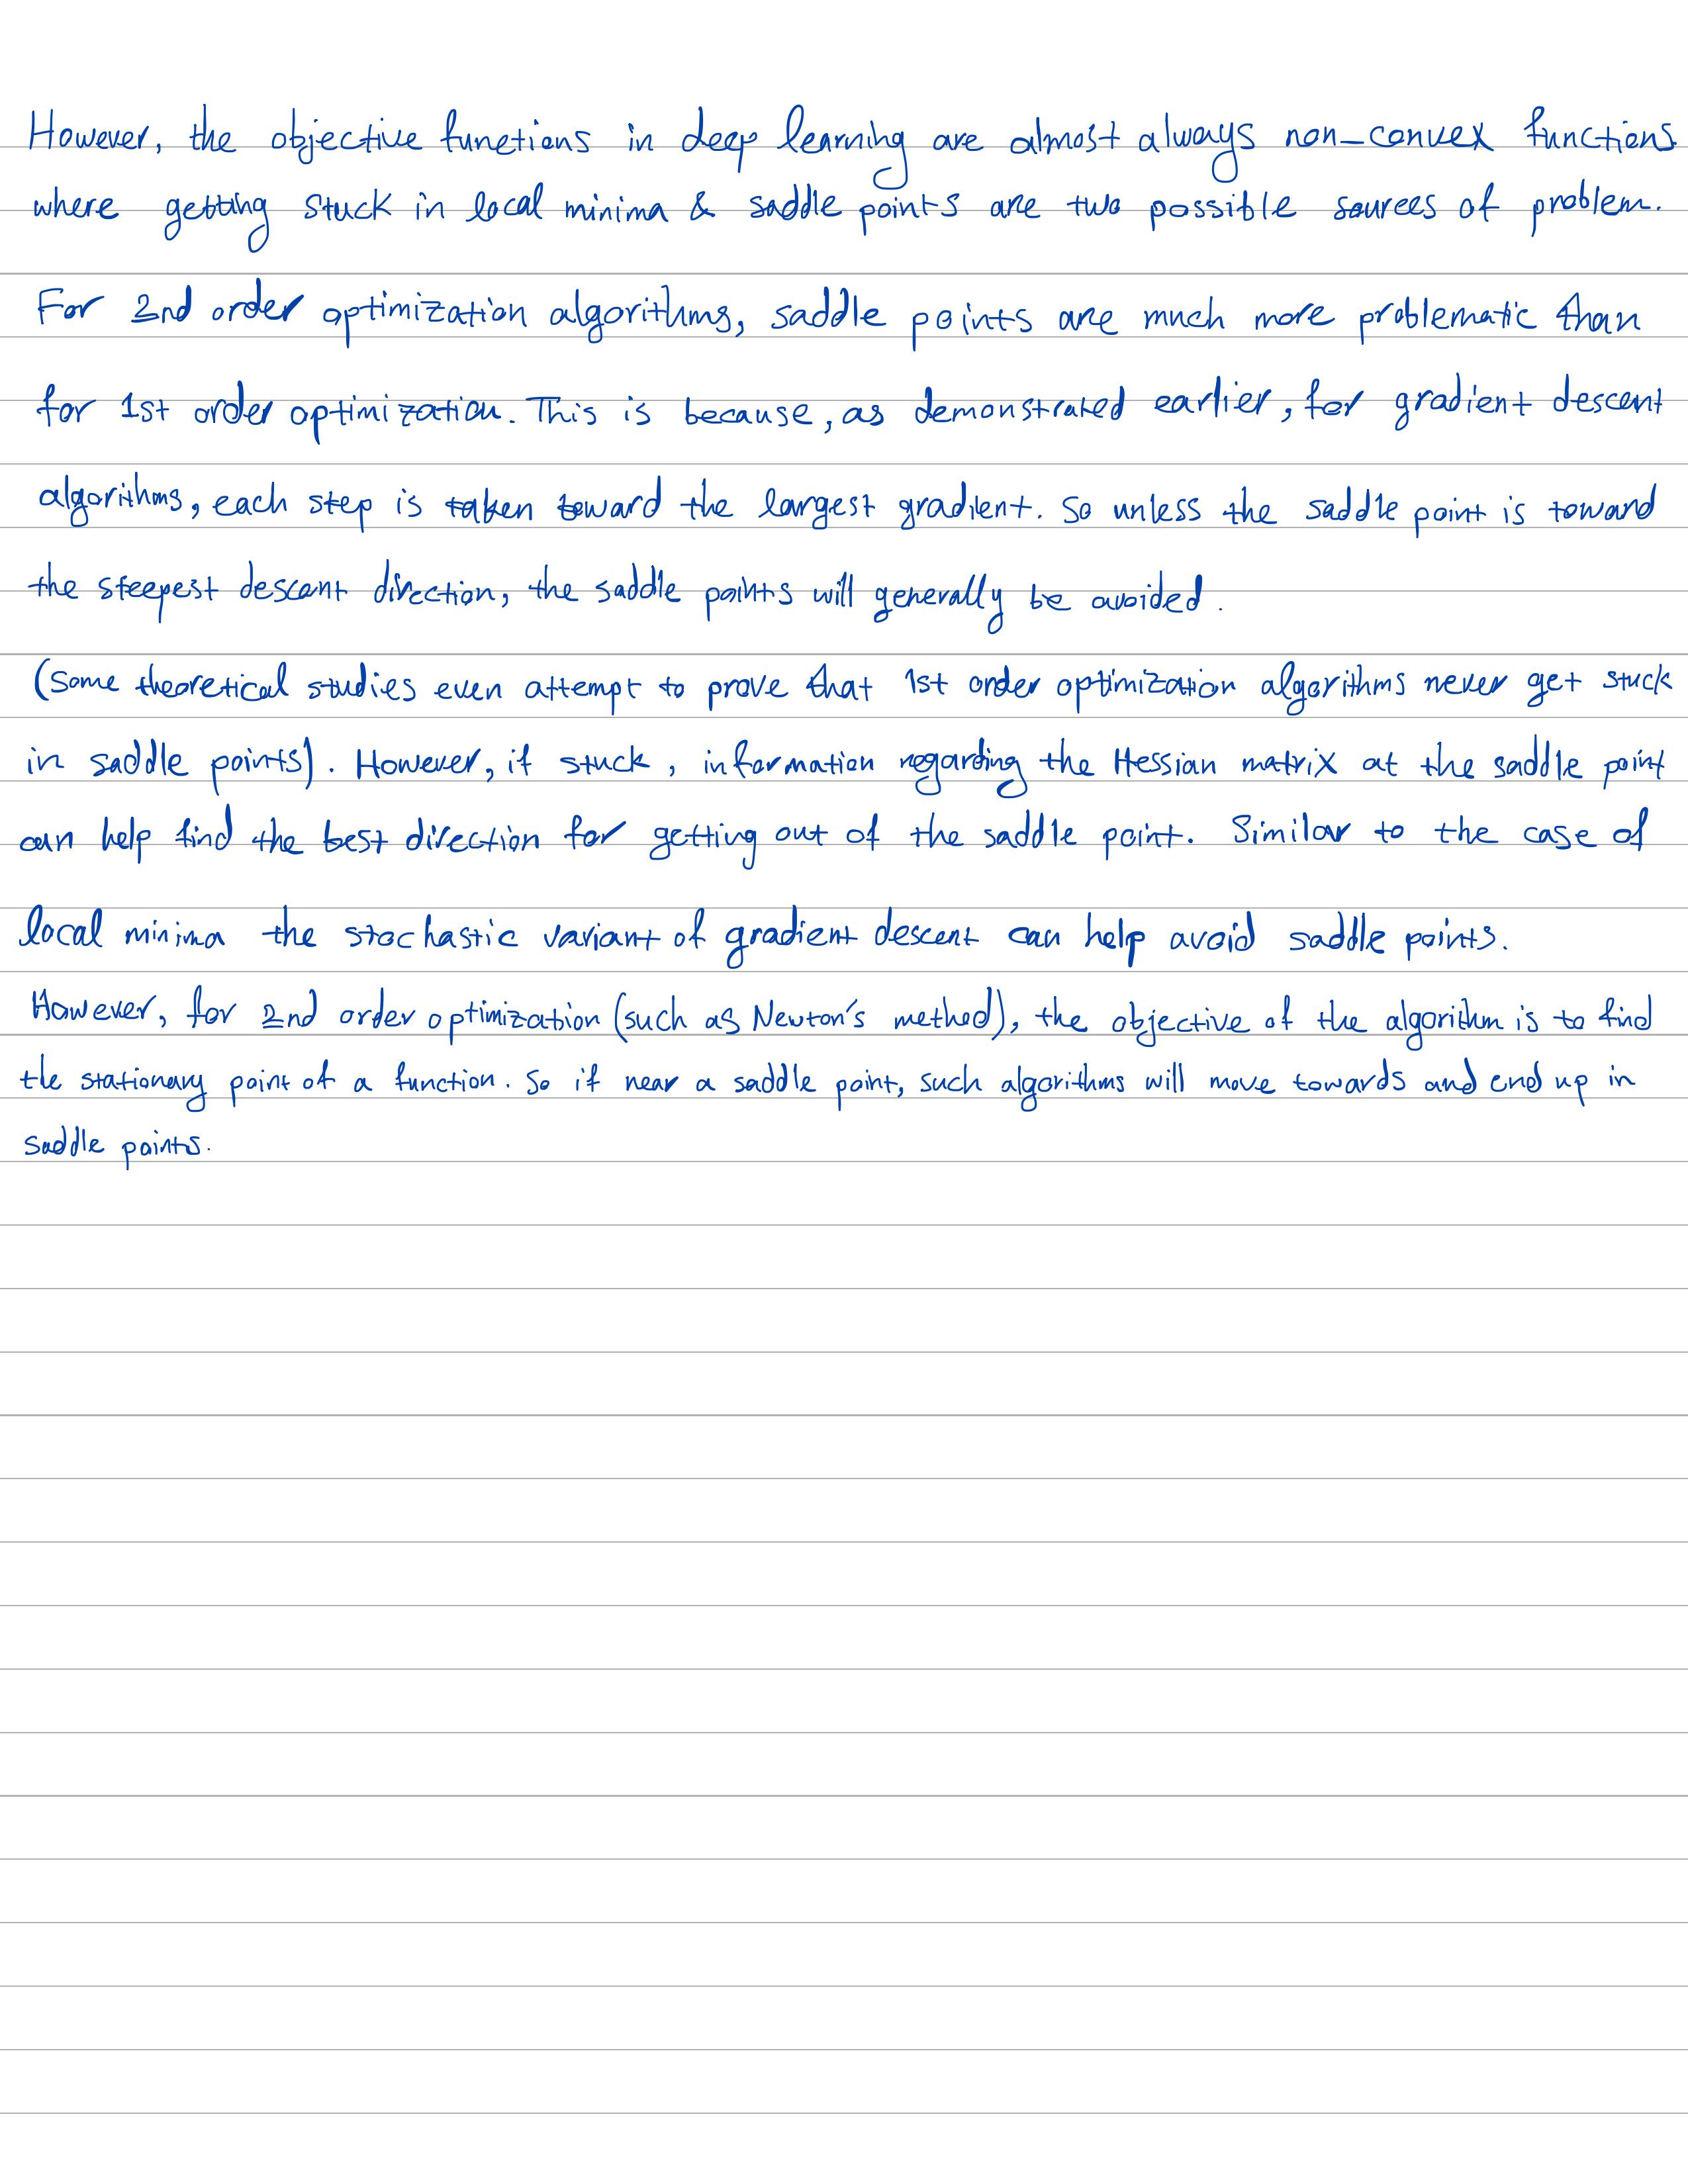 However, the objective functions in deep learning are almost always non-convex functions
where getting stuck in local minima & saddle points are two possible sources of problem.
For 2nd order optimization algorithms, saddle points are much more problematic than
for 1st order optimization. This is because, as demonstrated earlier, for gradient descent
algorithms, each step is taken toward the largest gradient. So unless the saddle point is toward
the steepest descent direction, the saddle points will generally be avoided.
(Some theoretical studies even attempt to prove that 1st order optimization algorithms never get stuck
in saddle points). However, if stuck, information regarding the Hessian matrix at the saddle point
can help find the best direction for getting out of the saddle point. Similar to the case of
local minima the stochastic variant of gradient descent can help avoid saddle points.
However, for 2nd order optimization (such as Newton's method), the objective of the algorithm is to find
the stationary point of a function. So if near a saddle point, such algorithms will move towards and end up in
saddle points.